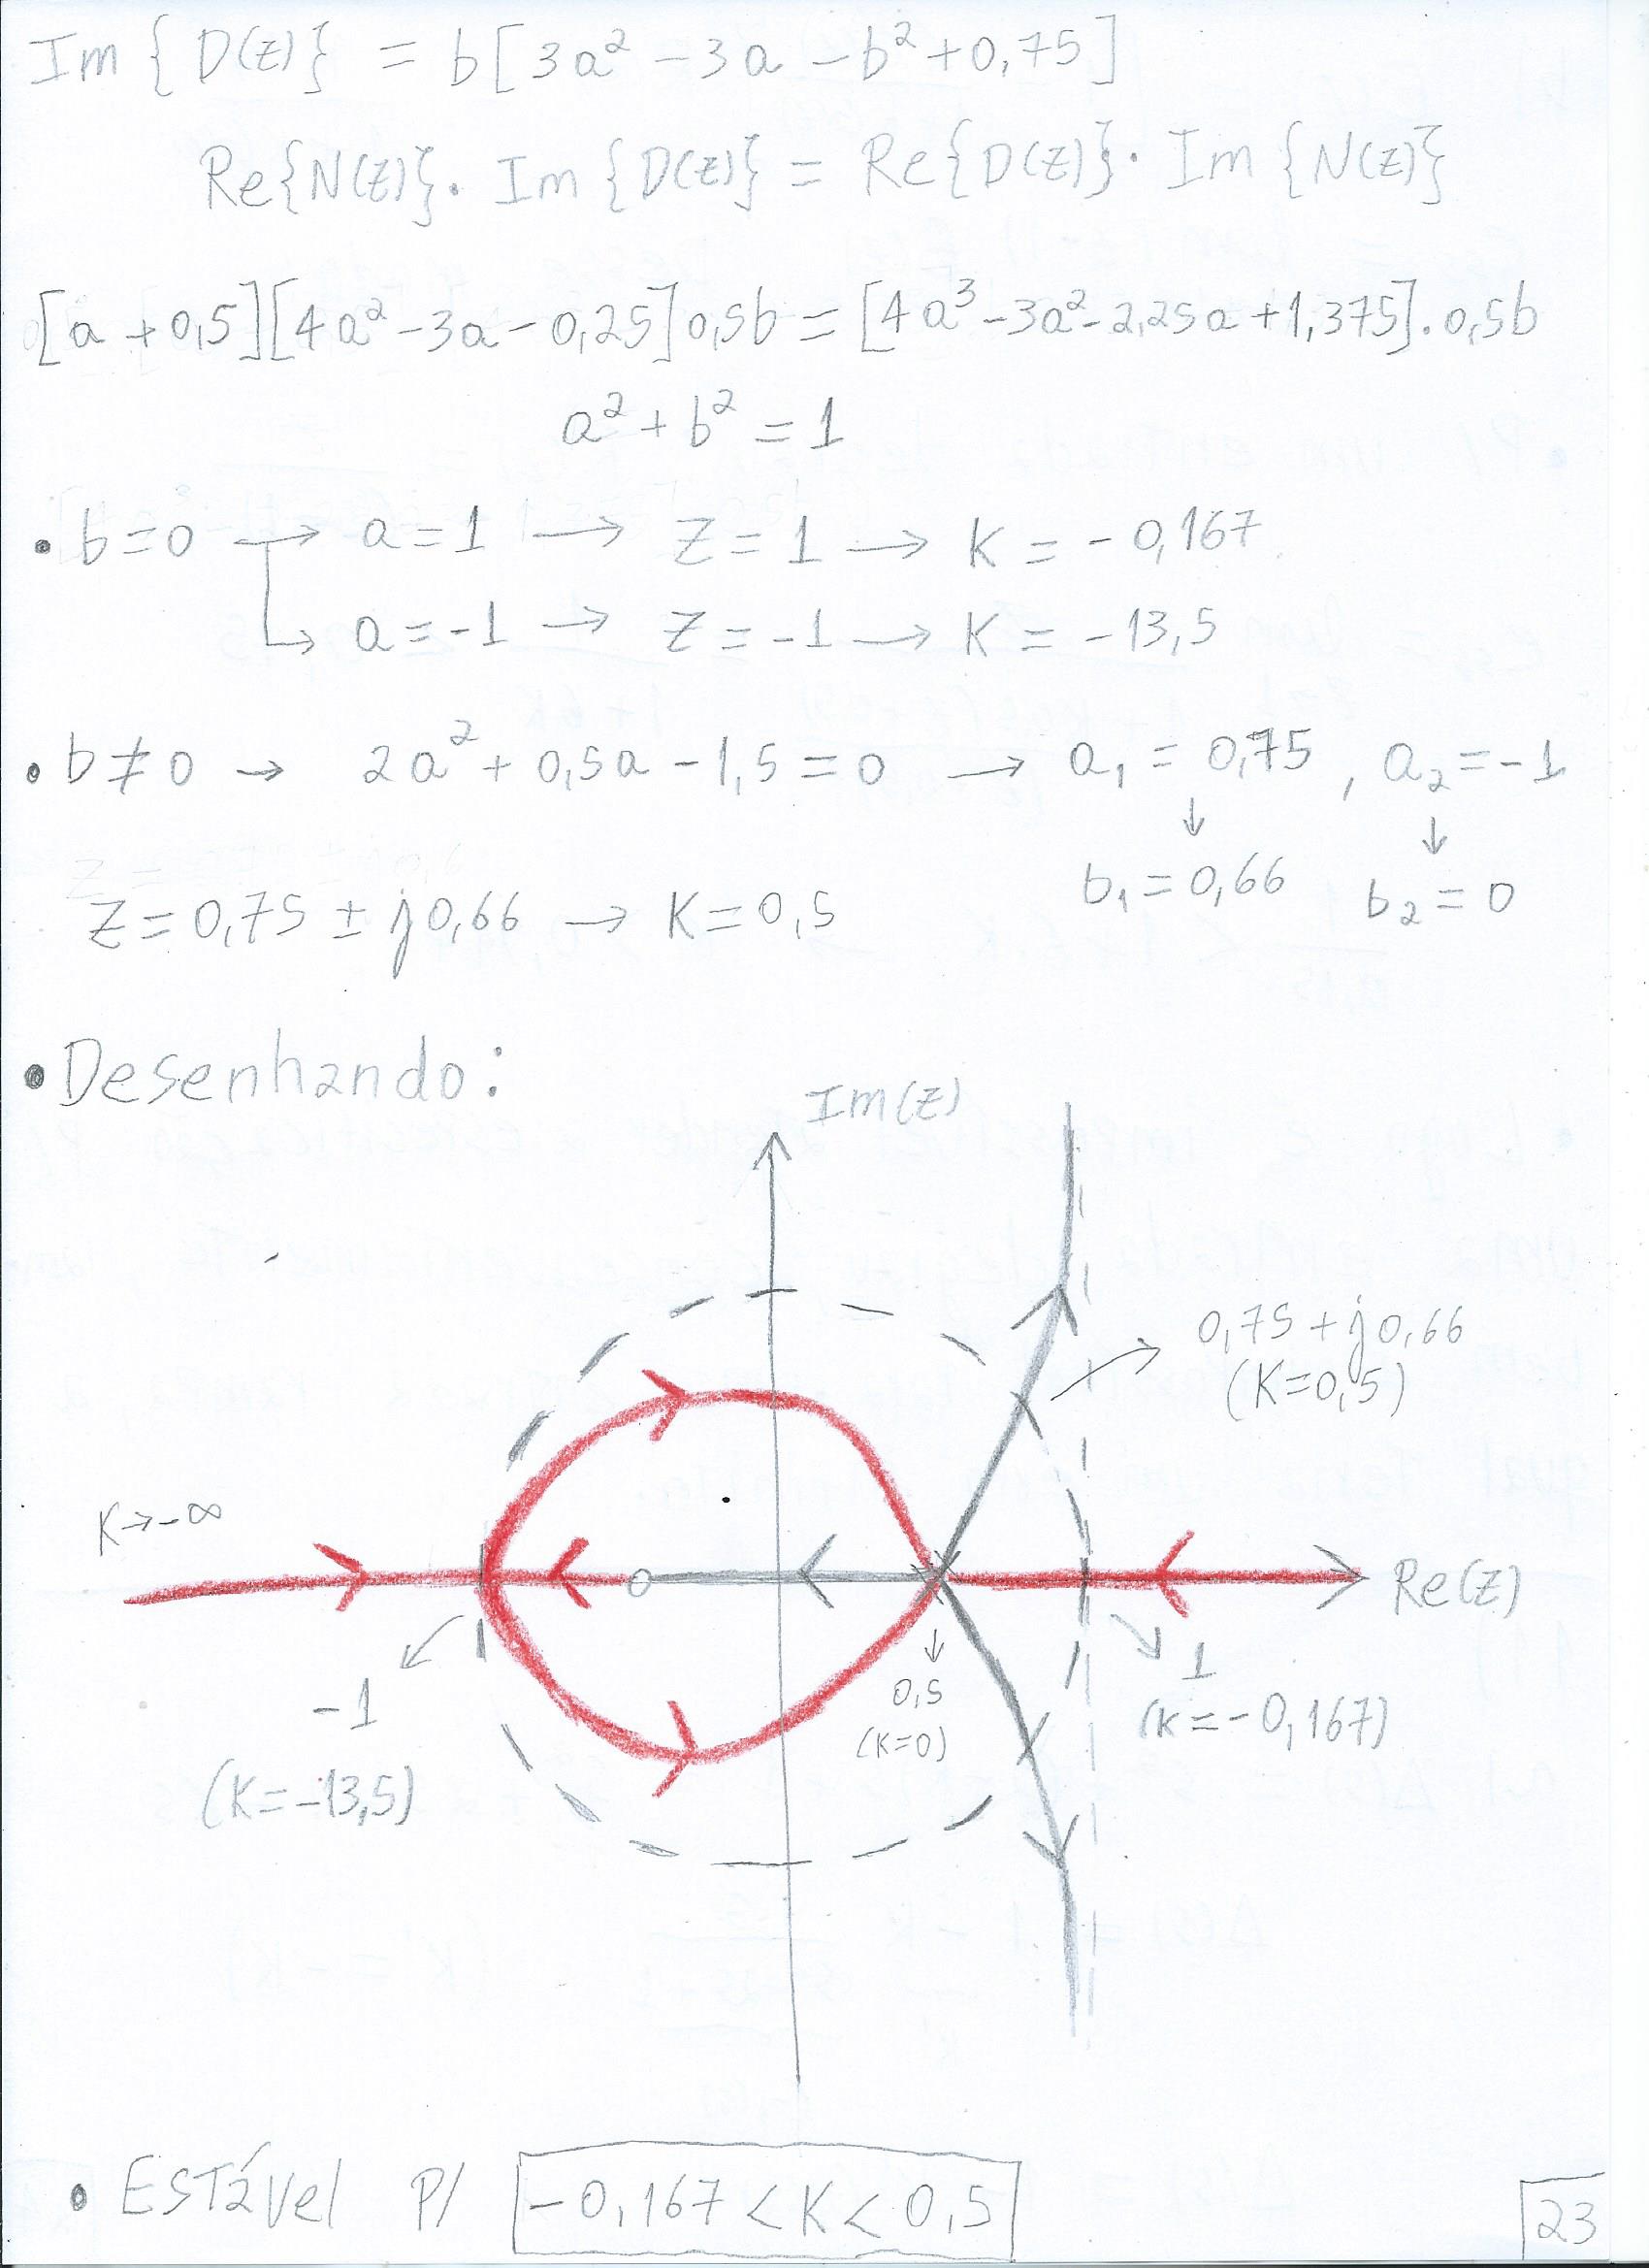 Im {D(z)} = b[3a² - 3a - b² + 0,75]
Re{N(z)}. Im {D(z)} = Re{D(z)}. Im {N(z)}
[a + 0,5][4a² - 3a - 0,25]0,5b = [4a³ - 3a² - 2,25a + 1,375].0,5b
a² + b² = 1
• b = 0 → a = 1 → z = 1 → K = -0,167
↳ a = -1 → z = -1 → K = -13,5
• b ≠ 0 → 2a² + 0,5a - 1,5 = 0 → a₁ = 0,75 , a₂ = -1
↓ ↓
b₁ = 0,66 b₂ = 0
z = 0,75 ± j0,66 → K = 0,5
• Desenhando:
Im(z)
0,75 + j0,66
(K=0,5)
K→-∞
Re(z)
-1
(K=-13,5)
0,5
(K=0)
1
(K=-0,167)
• Estável P/ -0,167 < K < 0,5
23